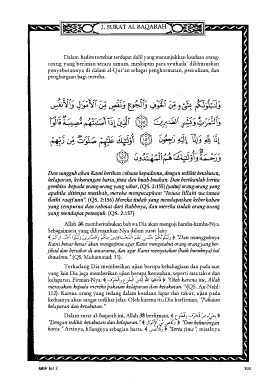 2. SURAT AL BAQARAH
Dalam hadits tersebut terdapat dalil yang menunjukkan keadaan orang-
orang yang beriman secara umum, meskipun para syuhada' dikhususkan
penyebutannya di dalam al-Qur'an sebagai penghormatan, pemuliaan, dan
penghargaan bagi mereka.
وَلَنَبْلُوَنَّكُم بِشَىْءٍ مِّنَ الْخَوْفِ وَالْجُوعِ وَنَقْصٍ مِّنَ الْأَمْوَالِ وَالْأَنفُسِ
وَالثَّمَرَاتِ وَبَشِّرِ الصَّابِرِينَ ﴿١٥٥﴾ الَّذِينَ إِذَا أَصَابَتْهُم مُّصِيبَةٌ قَالُوا
إِنَّا لِلَّهِ وَإِنَّا إِلَيْهِ رَاجِعُونَ ﴿١٥٦﴾ أُولَٰئِكَ عَلَيْهِمْ صَلَوَاتٌ مِّن رَّبِّهِمْ
وَرَحْمَةٌ وَأُولَٰئِكَ هُمُ الْمُهْتَدُونَ ﴿١٥٧﴾
Dan sungguh akan Kami berikan cobaan kepadamu, dengan sedikit ketakutan,
kelaparan, kekurangan harta, jiwa dan buah-buahan. Dan berikanlah berita
gembira kepada orang-orang yang sabar, (QS. 2:155) (yaitu) orang-orang yang
apabila ditimpa musibah, mereka mengucapkan: "Innaa lillaahi wa innaa
ilaihi raaji'uun". (QS. 2:156) Mereka itulah yang mendapatkan keberkahan
yang sempurna dan rahmat dari Rabbnya, dan mereka itulah orang-orang
yang mendapat petunjuk. (QS. 2:157)
Allah memberitahukan bahwa Dia akan menguji hamba-hamba-Nya.
Sebagaimana yang difirmankan-Nya dalam surat lain:
"Dan sesungguhnya
Kami benar-benar akan menguji kamu agar Kami mengetahui orang-orang yang ber-
jihad dan bersabar di antara kamu, dan agar Kami menyatakan (baik buruknya) hal
ihwalmu." (QS. Muhammad: 31).
Terkadang Dia memberikan ujian berupa kebahagiaan dan pada saat
yang lain Dia juga memberikan ujian berupa kesusahan, seperti rasa takut dan
kelaparan. Firman-Nya: "Oleh karena itu, Allah
merasakan kepada mereka pakaian kelaparan dan ketakutan." (QS. An-Nahl:
112). Karena orang yang sedang dalam keadaan lapar dan takut, ujian pada
keduanya akan sangat terlihat jelas. Oleh karena itu Dia berfirman, "Pakaian
kelaparan dan ketakutan."
Dalam surat al-Baqarah ini, Allah berfirman,
"Dengan sedikit ketakutan dan kelaparan." "Dan kekurangan
harta." Artinya, hilangnya sebagian harta. "Serta jiwa", misalnya
Juz 2
303